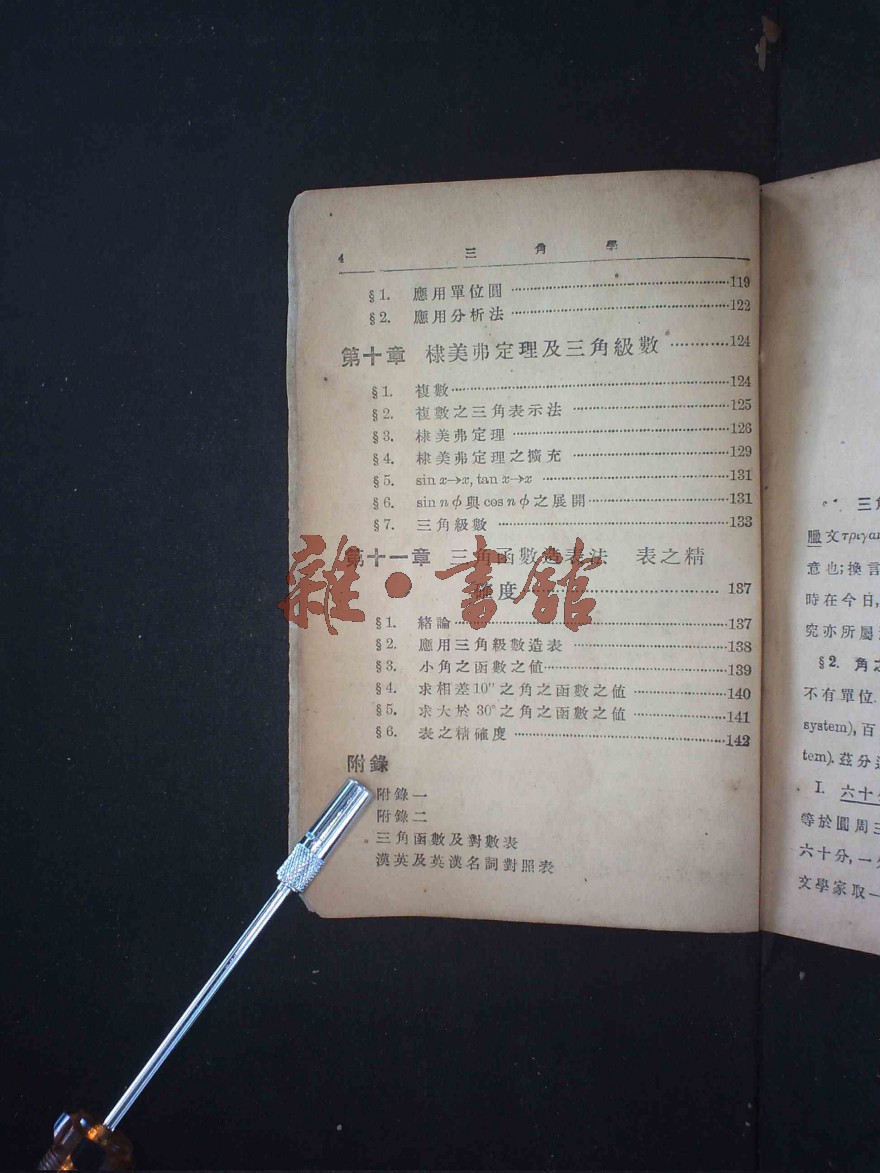 4 三角學
§1. 應用單位圓 119
§2. 應用分析法 122
第十章 棣美弗定理及三角級數 124
§1. 複數 124
§2. 複數之三角表示法 125
§3. 棣美弗定理 126
§4. 棣美弗定理之擴充 129
§5. sin x→x, tan x→x 131
§6. sin n ϕ 與 cos n ϕ 之展開 131
§7. 三角級數 133
第十一章 三角函數造表法 表之精
確度 137
§1. 緒論 137
§2. 應用三角級數造表 138
§3. 小角之函數之值 139
§4. 求相差 10″ 之角之函數之值 140
§5. 求大於 30° 之角之函數之值 141
§6. 表之精確度 142
附錄
附錄一
附錄二
三角函數及對數表
漢英及英漢名詞對照表
雜·書館
三
臘文
意也;換言
時在今日,
究亦所屬
§2. 角之
不有單位.
system), 百
tem). 茲分
I. 六十
等於圓周三
六十分,一
文學家取一